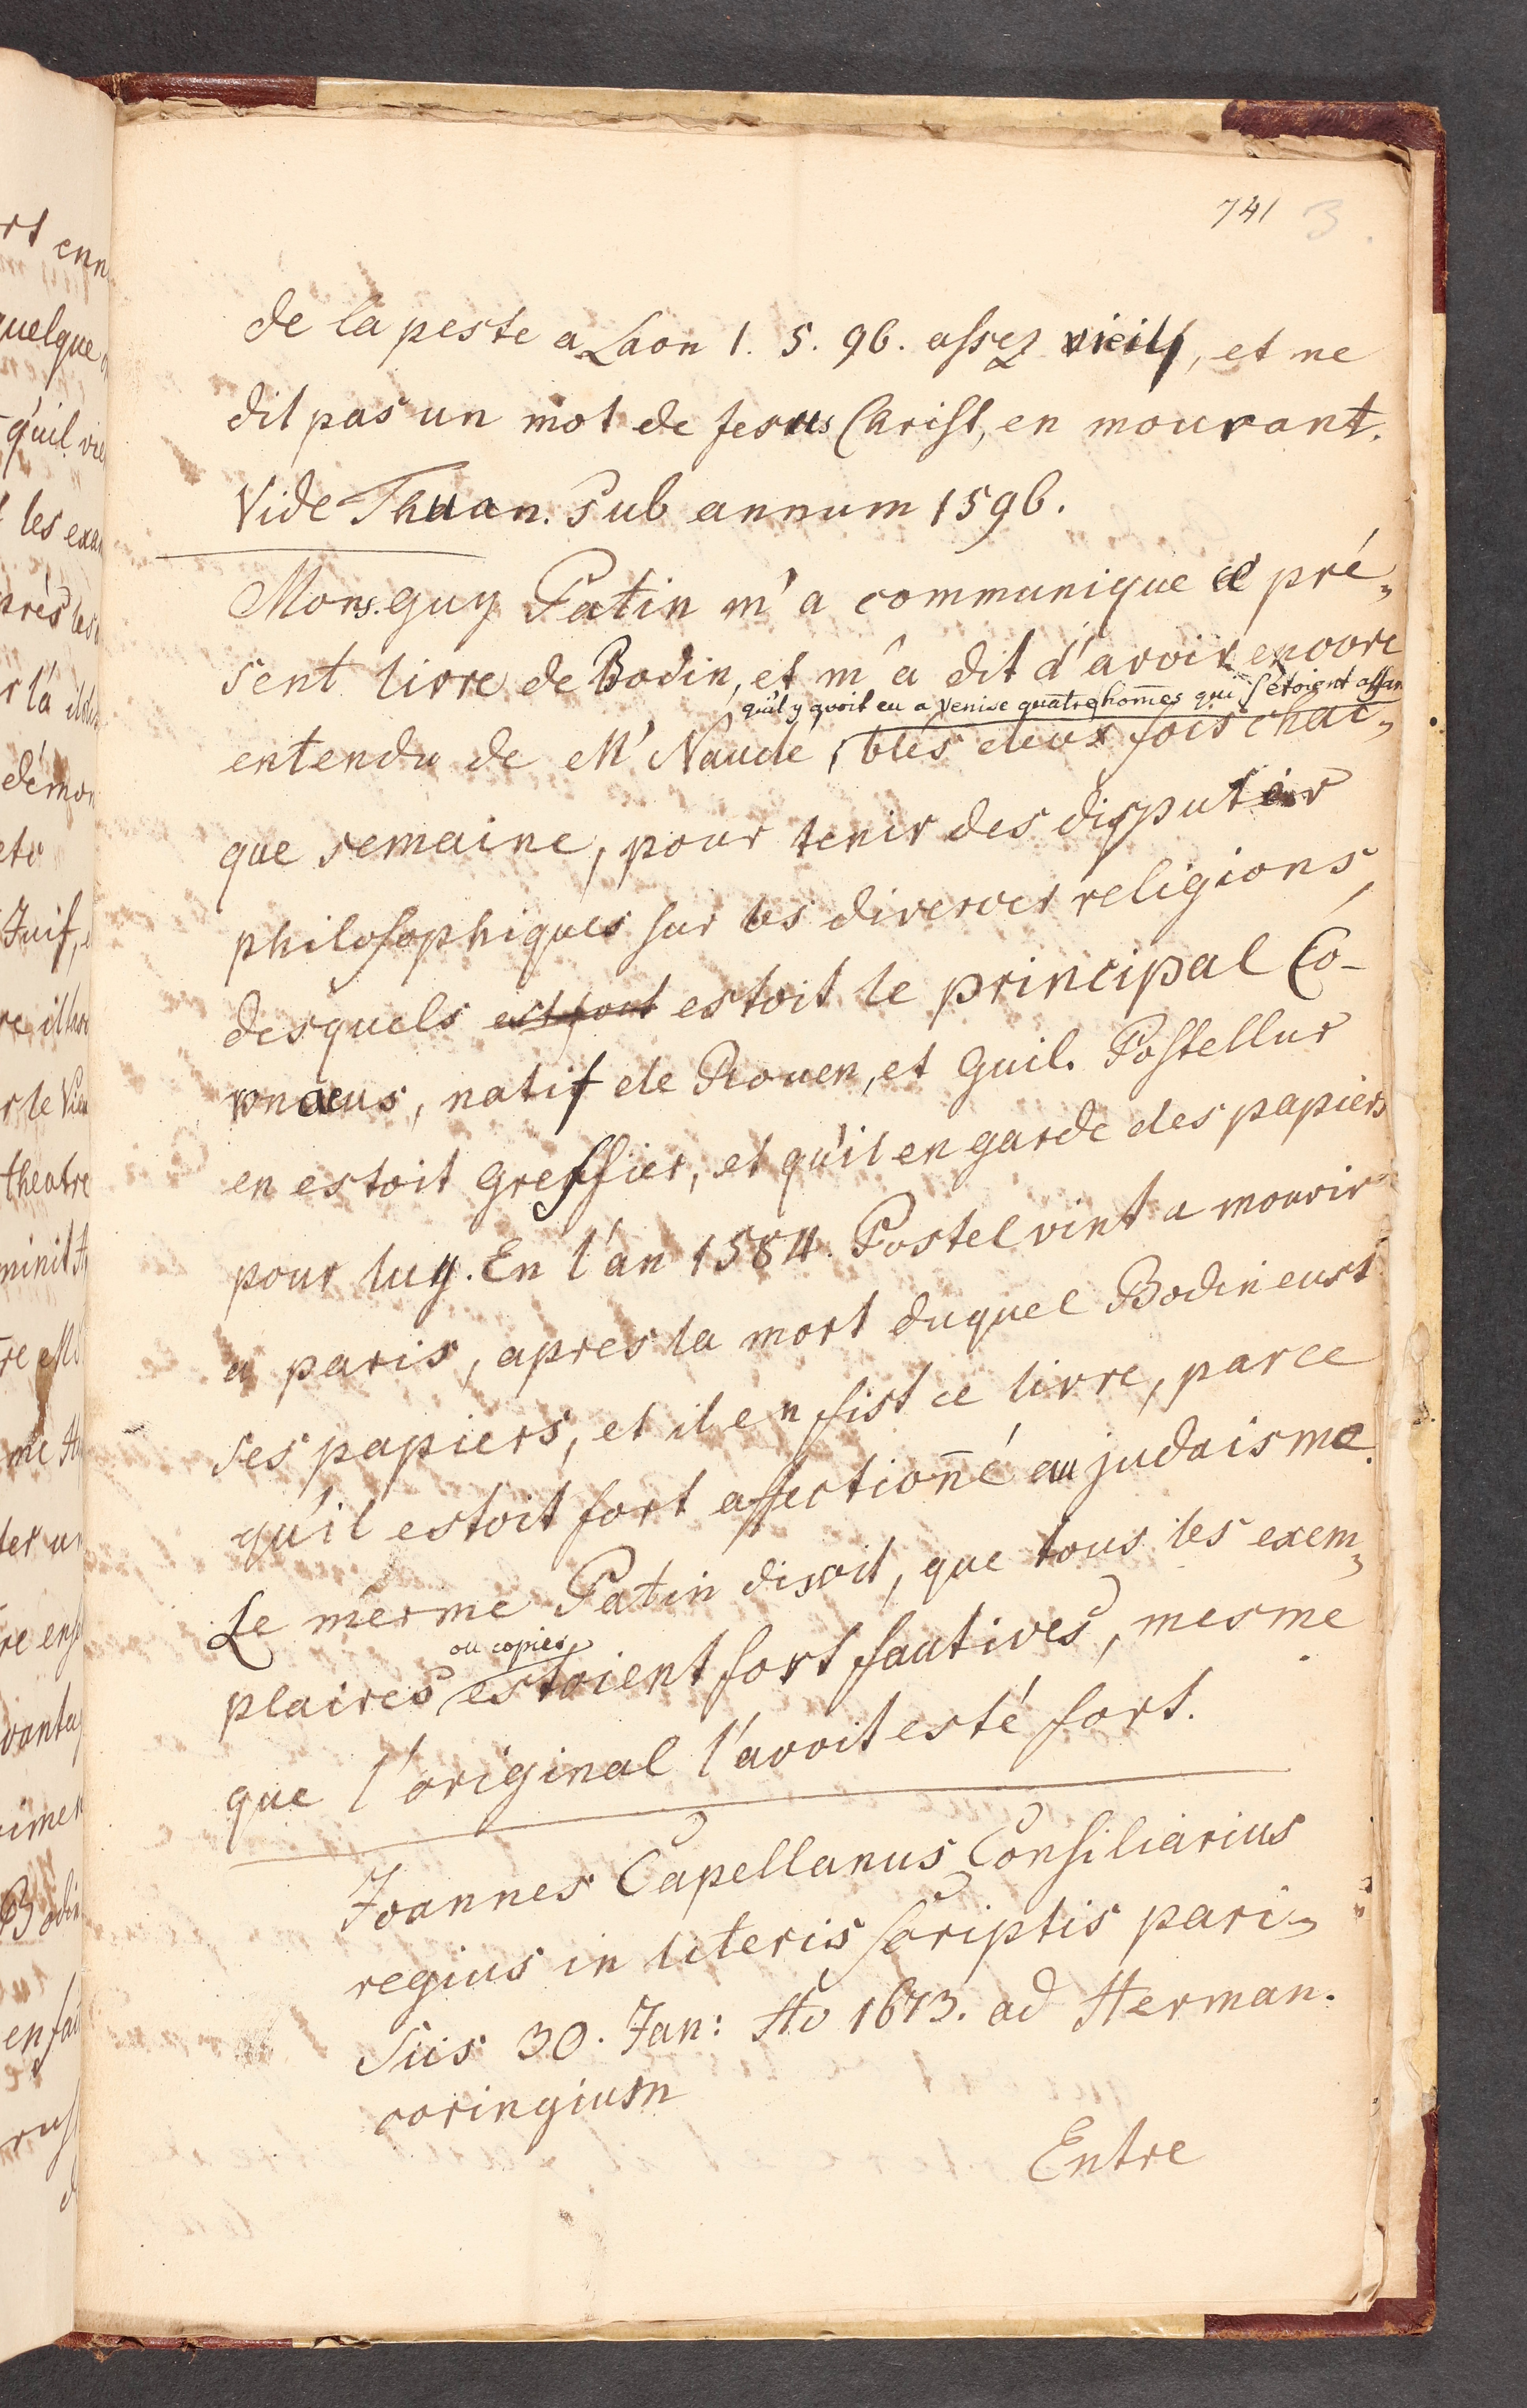 741 3
de la peste a Laon 1. 5. 96. assez vieil, et ne
dit pas un mot de Jesus Christ, en mourant.
Vide Thuan. Sub annum 1596.
Mons. Guy Patin m'a communique ce pré-
sent livre de Bodin, et m'a dit d'avoir encore
qu'il y avoit eu a Venise quatre hom̄es qui s'étoient assam
entendu de Mr Naudé, blés deux fois chac-
que semaine, pour tenir des disputes
philosophiques sur les diverses religions,
desquels estoit le principal Co-
ronaeus, natif de Rouen, et Guil. Postellus
en estoit Greffier, et qu'il en garde des papiers
pour luy. En l'an 1584. Postel vint a mourir
a paris, apres la mort duquel Bodin eust
ses papiers, et il en fist ce livre, parce
qu'il estoit fort affection̄é au judaisme.
Le mesme Patin disoit, que tous les exem-
ou copies
plaires estoient fort fautives, mesme
que l'original l'avoit esté fort.
Joannes Capellanus Consiliarius
regius in literis scriptis pari-
siis 30. Jan: Ao 1673. ad Herman.
coringium
Entre
rt enn
quelque
qu'il vie
les exa
près les
démon
Juif,
theatre
Bodin